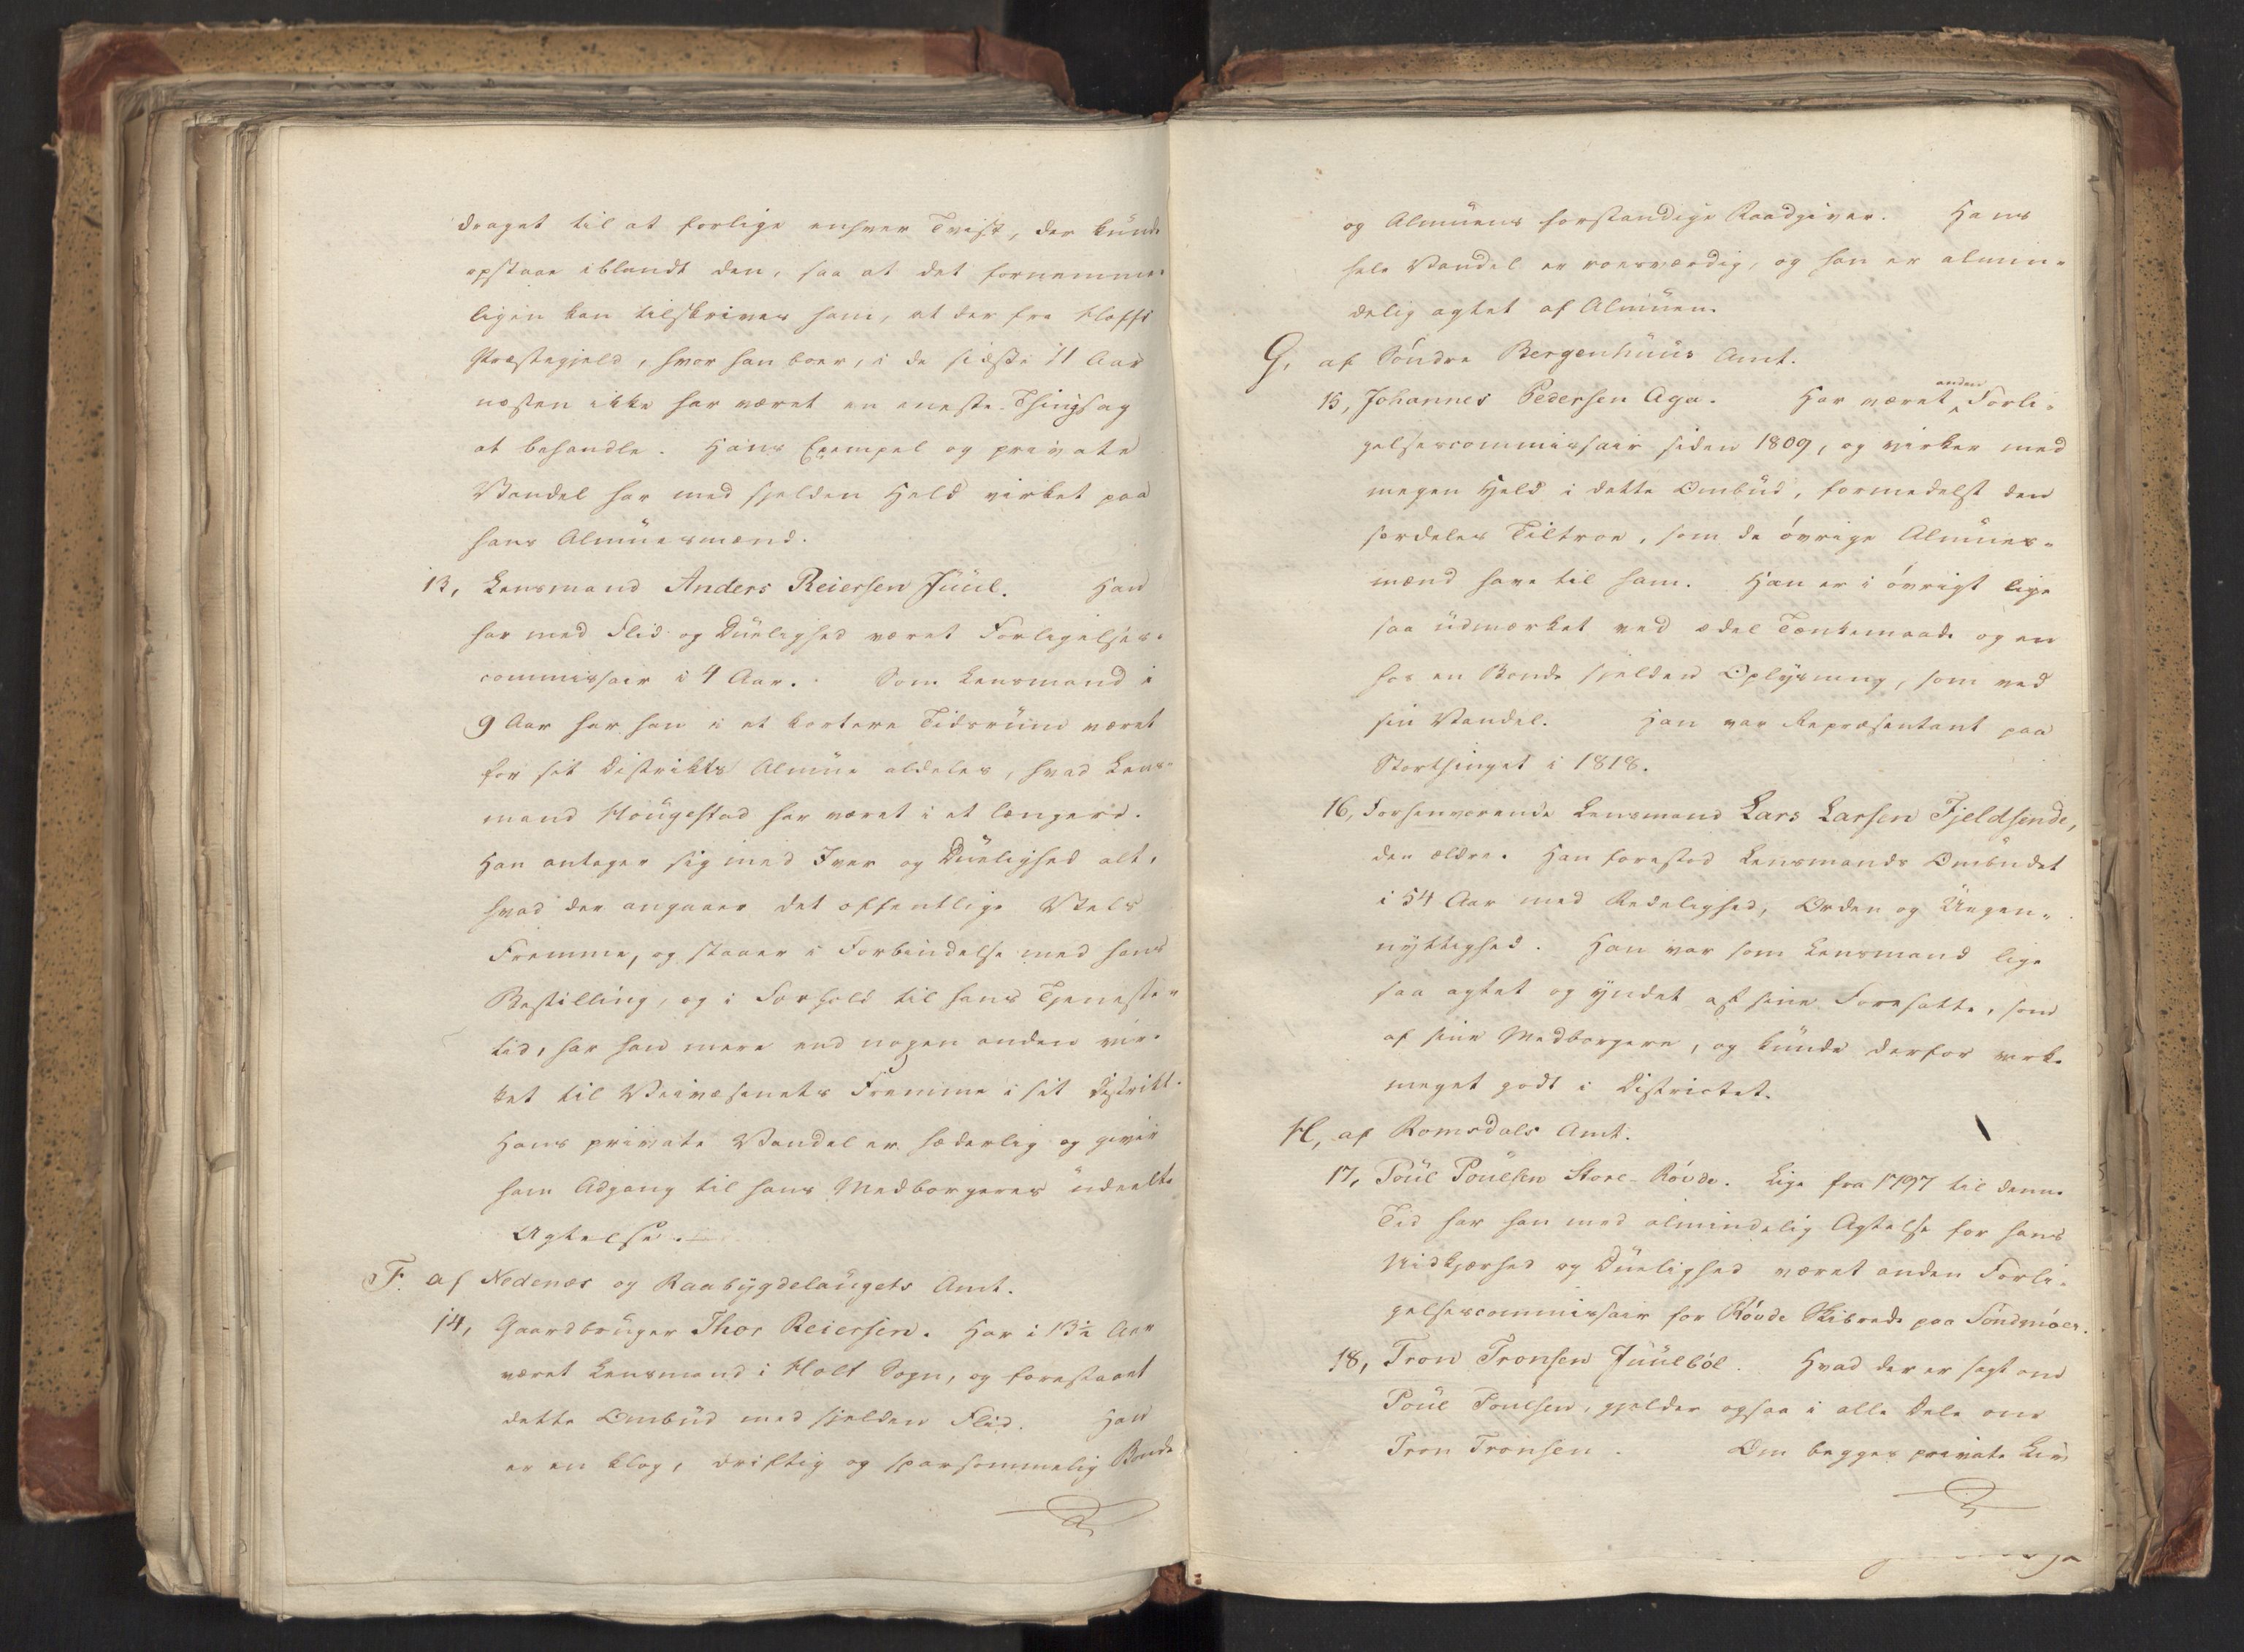 draget til at forlige enhver Tvist, der kunde
opstaae iblandt den, saa at det fornemme-
ligen kan tilskrives ham, at der fra Kloffs
Præstegjeld, hvor han boer, i de sidste 11 Aar
næsten ikke har været en eneste Thingsag
at behandle. Hans Exempel og private
Vandel har med sjelden Held virket paa
hans Almuesmænd.
13, Lensmand Anders Reiersen Juul. Han
har med Flid og Duelighed været Forligelses-
commissair i 4 Aar. Som Lensmand i
9 Aar har han i et kortere Tidsrum været
for sit Distrikts Almue aldeles, hvad Lens-
mand Hougestad har været i et længere.
Han antager sig med Iver og Duelighed alt,
hvad der angaaer det offentlige Vels
Fremme, og staaer i Forbindelse med hans
Bestilling, og i Forhold til hans Tjeneste-
tid, har han mere end nogen anden vir-
ket til Veivæsenets Fremme i sit Distrikt.
Hans private Vandel er hæderlig og giver
ham Adgang til hans Medborgeres udeelte
Agtelse.
F. af Nedenæs og Raabygdelaugets Amt.
14, Gaardbruger Thor Reiersen. Har i 13½ Aar
været Lensmand i Holt Sogn, og forestaaet
dette Ombud med sjelden Flid. Han
er en klog, driftig og sparsommelig Bonde
og Almuens forstandige Raadgiver. Hans
hele Vandel er roesværdig, og han er almin-
delig agtet af Almuen.
G, af Söndre Bergenhuus Amt.
15, Johannes Pedersen Aga. Har været anden Forli-
gelsescommissair siden 1809, og virker med
megen Held i dette Ombud, formedelst den
særdeles Tiltroe, som de övrige Almues-
mænd have til ham. Han er i övrigt lige
saa udmærket ved ædel Tænkemaade og en
hos en Bonde sjelden Oplysning, som ved
sin Vandel. Han var Repræsentant paa
Storthinget i 1818.
16, Forhenværende Lensmand Lars Larsen Fjeldsende,
den ældre. Han forestod Lensmands Ombudet
i 54 Aar med Redelighed, Orden og Uegen-
nyttighed. Han var som Lensmand lige
saa agtet og yndet af sine Foresatte, som
af sine Medborgere, og kunde derfor virke
meget godt i Districtet.
H, af Romsdals Amt.
17, Poul Poulsen Store-Rövde. Lige fra 1797 til denne
Tid har han med almindelig Agtelse for hans
Nidkjærhed og Duelighed været anden Forli-
gelsescommissair for Rövde Skibrede paa Söndmöer.
18, Tron Tronsen Juulböl. Hvad der er sagt om
Poul Poulsen, gjelder ogsaa i alle Dele om
Tron Tronsen. Om begges private Liv